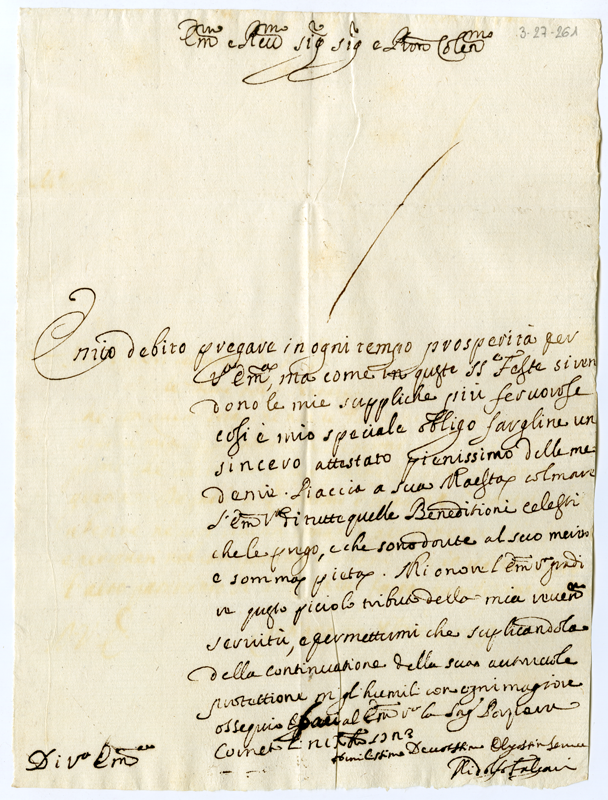 3-27-261
Em.mo e Rev.mo Sig.r Sig.r e Pron Col.mo
E mio debito pregare in ogni tempo prosperità per
V.ra Em.za, ma come in queste SS.e Feste si ren
dono le mie suppliche più fervorose
cosi è mio speciale obligo fargline un
sincero attestato pienissimo delle me
deme. Piaccia a sua Maestà colmare
l'Em.za V.ra di tutte quelle Beneditioni celesti
che le prego, e che sono dovute al suo merito
e somma pietà. Mi onore l'Em.za V.ra gradi
re questo piciolo tributo della mia rever.ma
servitù, e permettermi che suplicandola
della continuatione della sua autorevole
protettione mi gl'humili con ogni magiore
ossequio al Em.za V.ra la
Corneto li
Humilissimo Devotissimo
Di V.ra Em.za
Ridolfo